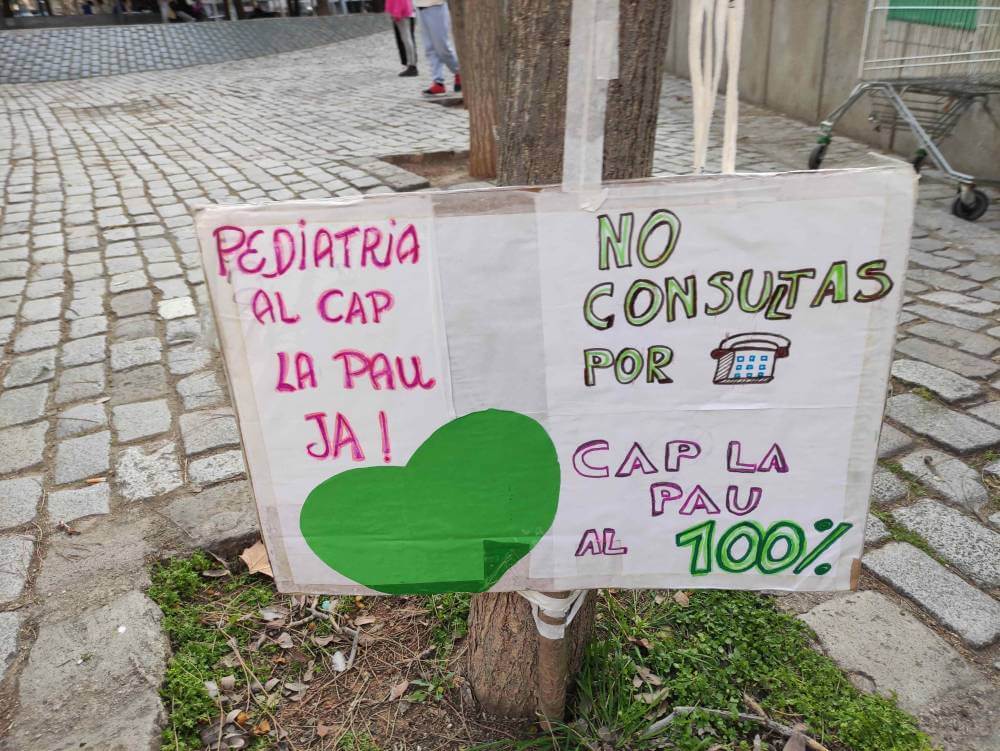 PEDiATRiA
AL CAP
LA PAU
JA!
NO
CONSULTAS
POR
CAP LA
PAU
AL 100%